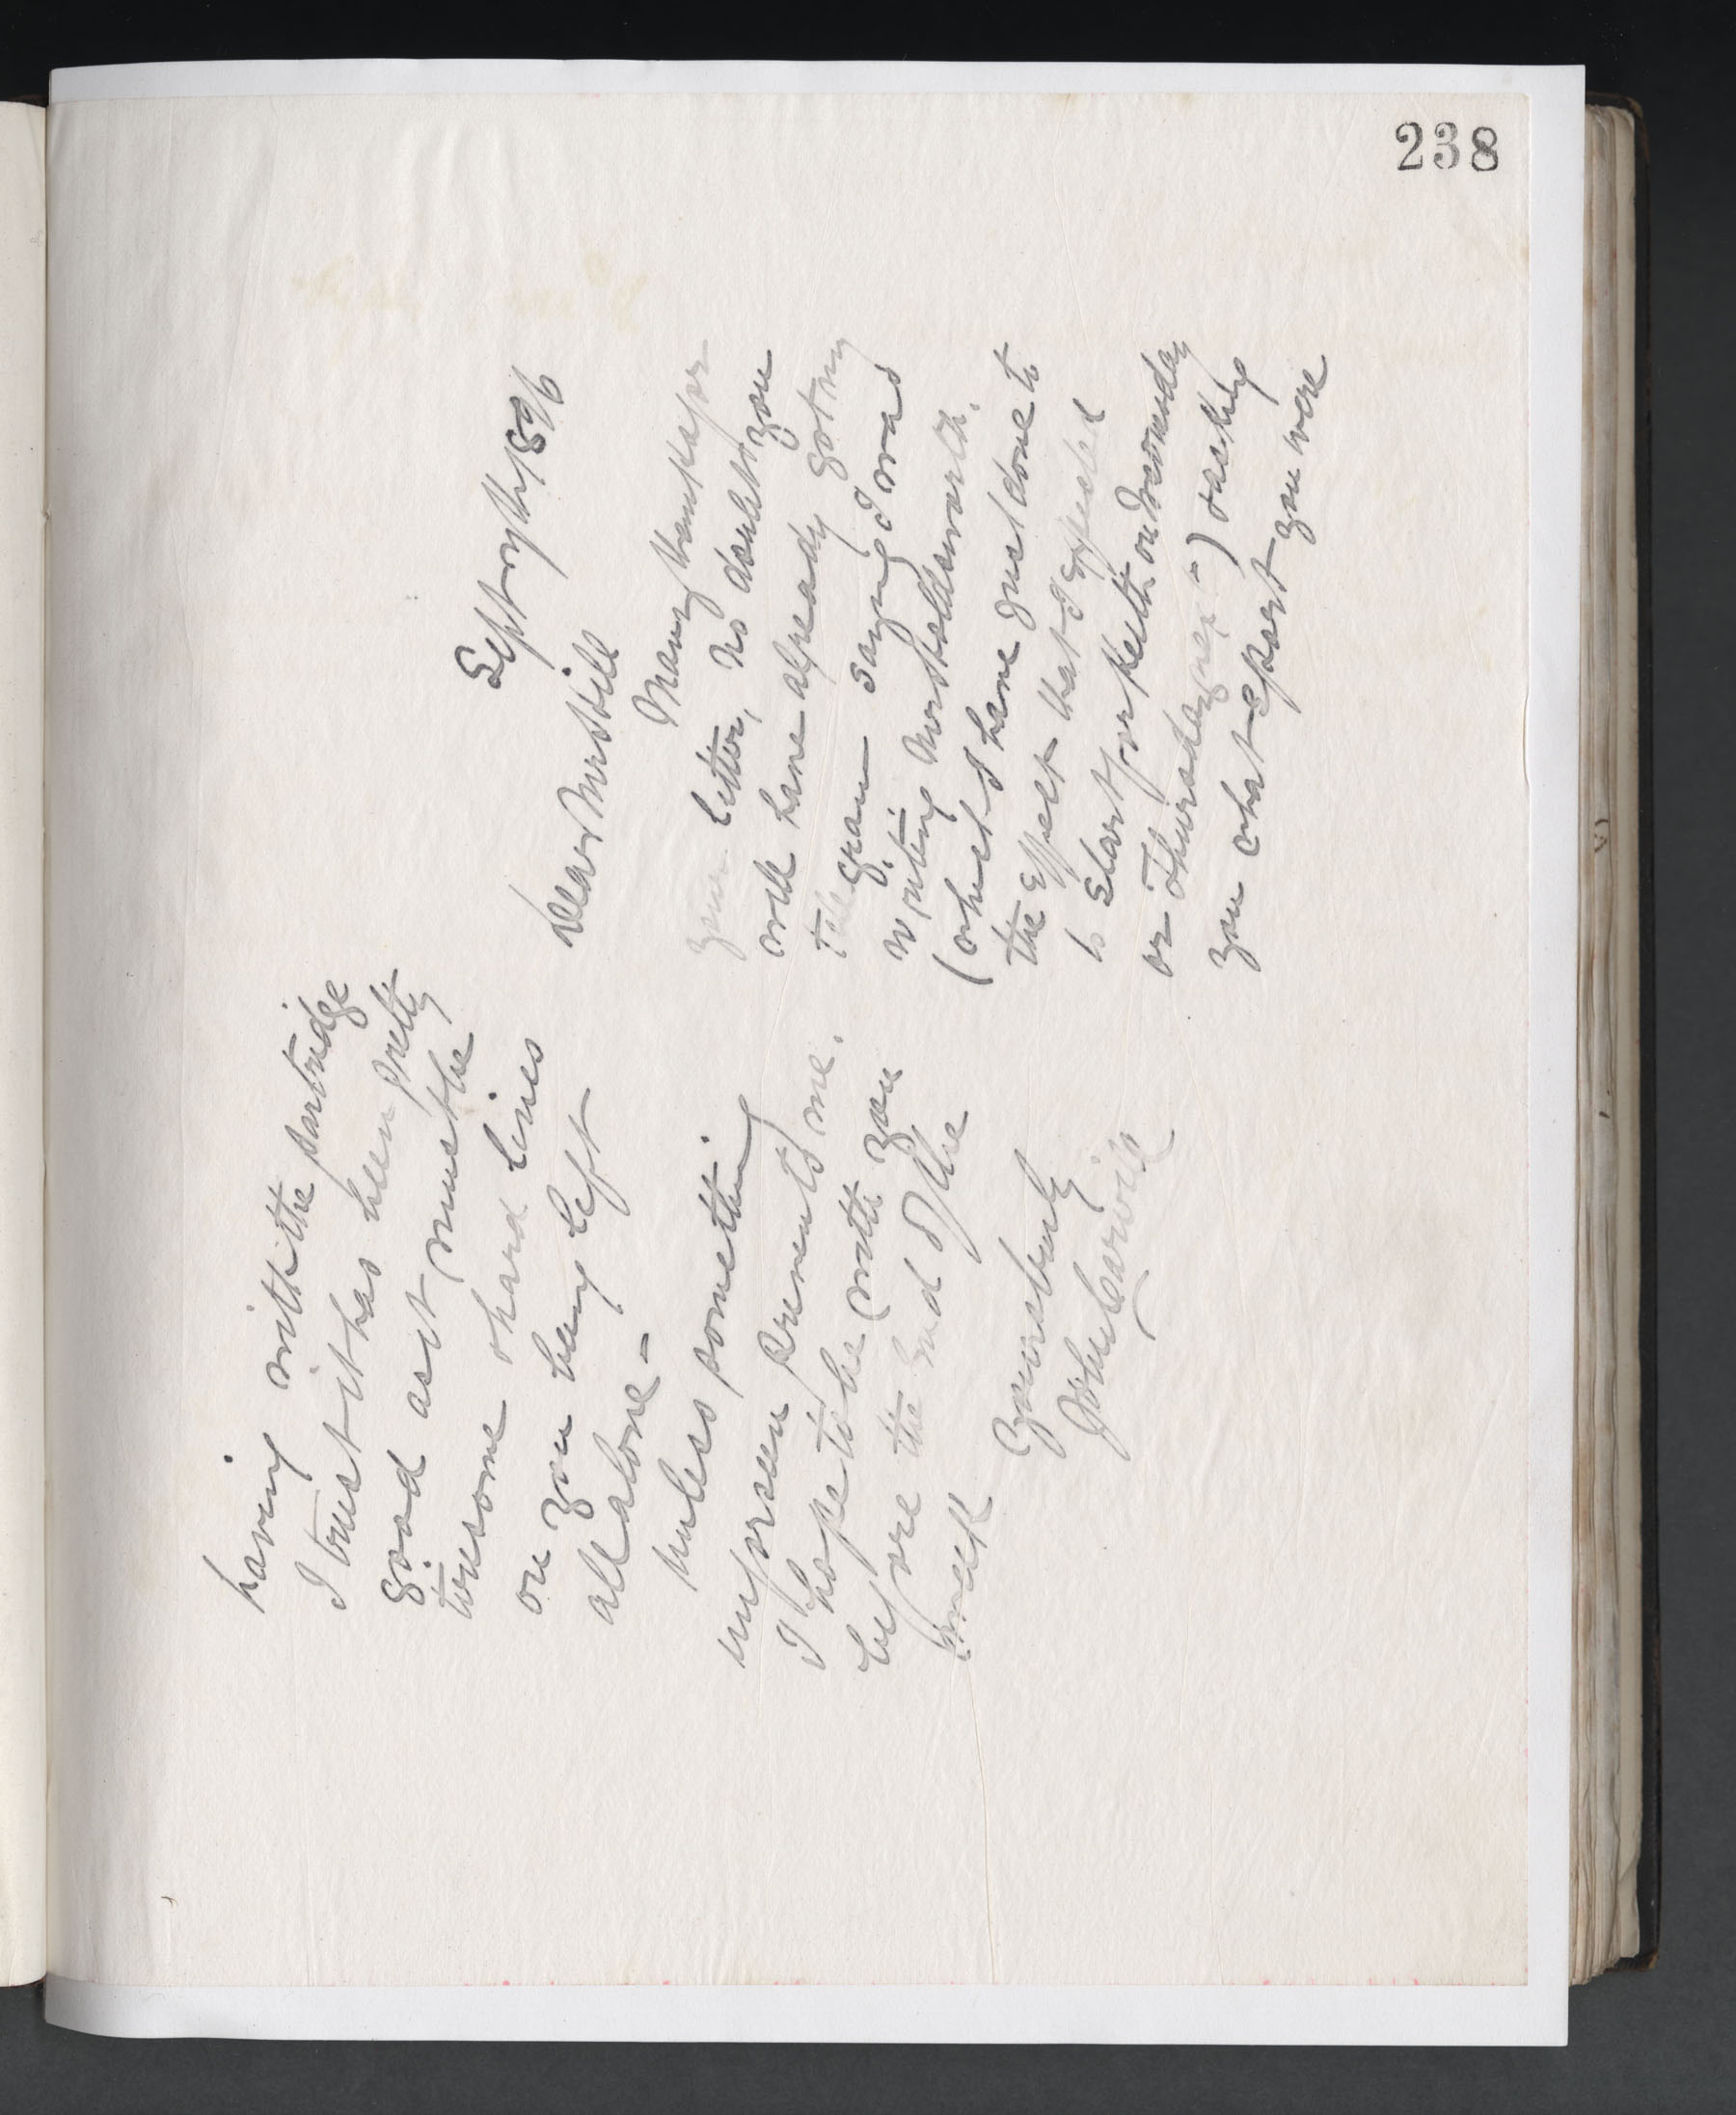 238
Sept 5th 1896
Dear Mrs Hill
Many thanks for
your letter, No doubt you
will have already got my
telegram saying I was
writing Mrs Holdsworth.
(which I have just done to
the effect that I expected
to start for Keith on Wednesday
or Thursday next) & asking
you what sport you were
having with the partridge
I trust it has been pretty
good as it must be
tiresome & hard lines
on you being left
all alone -
Unless something
unforseen prevents me.
I hope to be with you
before the end of the
week
Yours truly
John Carwick